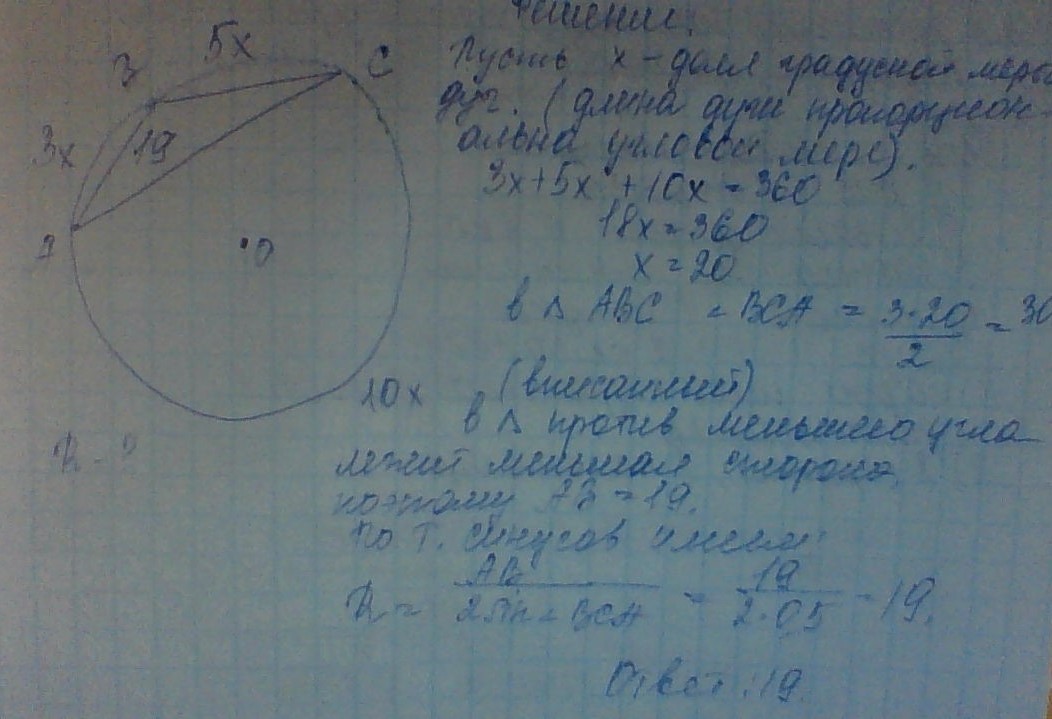 Решение.
5x
В
С
Пусть x - доля градусной меры
дуг. (длина дуги пропорцион-
3x
19
альна угловой мере).
3x+5x +10x = 360
18x = 360
А
O
x = 20
в △ ABC ∠ BCA = 3·20/2 = 30
10x
(вписанный)
в △ против меньшего угла
R - ?
лежит меньшая сторона,
поэтому AB = 19.
По т. синусов имеем:
R = AB/2sin∠BCA = 19/2·0,5 = 19.
Ответ: 19.